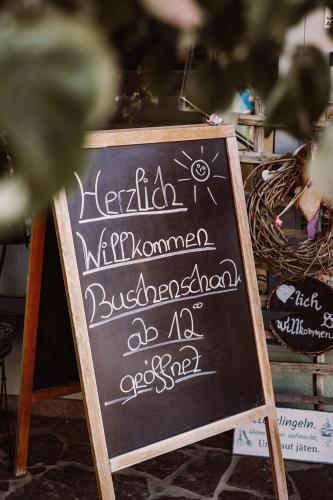 Herzlich
Willkommen
Buschenschank
ab 12⁰⁰
geöffnet
lich
willkommen
lingeln.
aufmacht,
jäten.